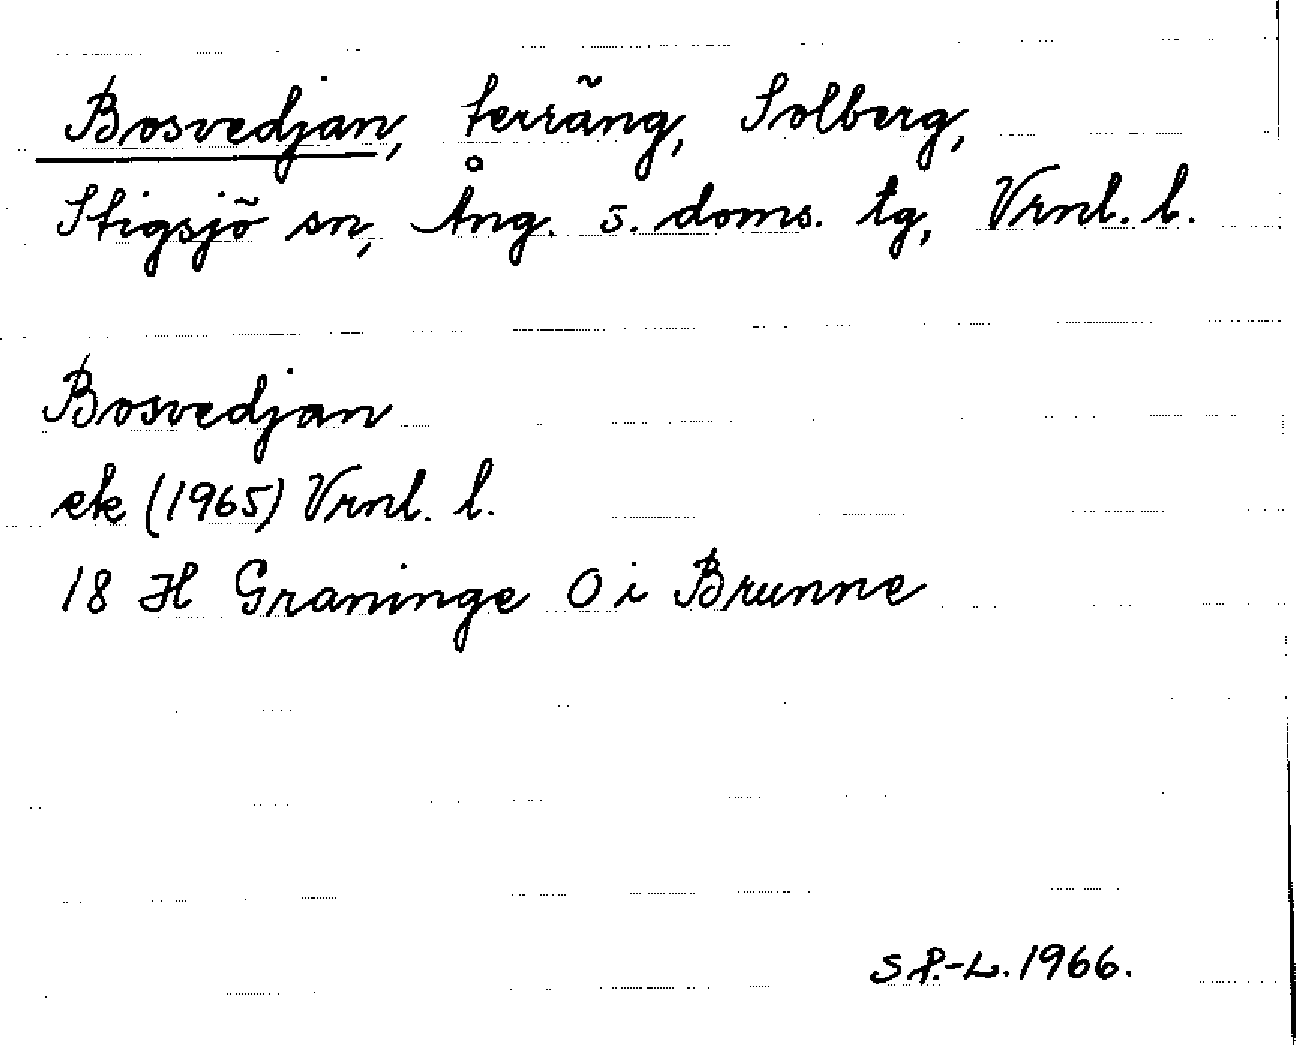 Bosvedjan, terräng, Solberg,
Stigsjö sn, Ång. s. doms. tg, Vrnl. l.
Bosvedjan
ek (1965) Vrnl. l.
18 H Graninge O i Brunne
S P.-L. 1966.